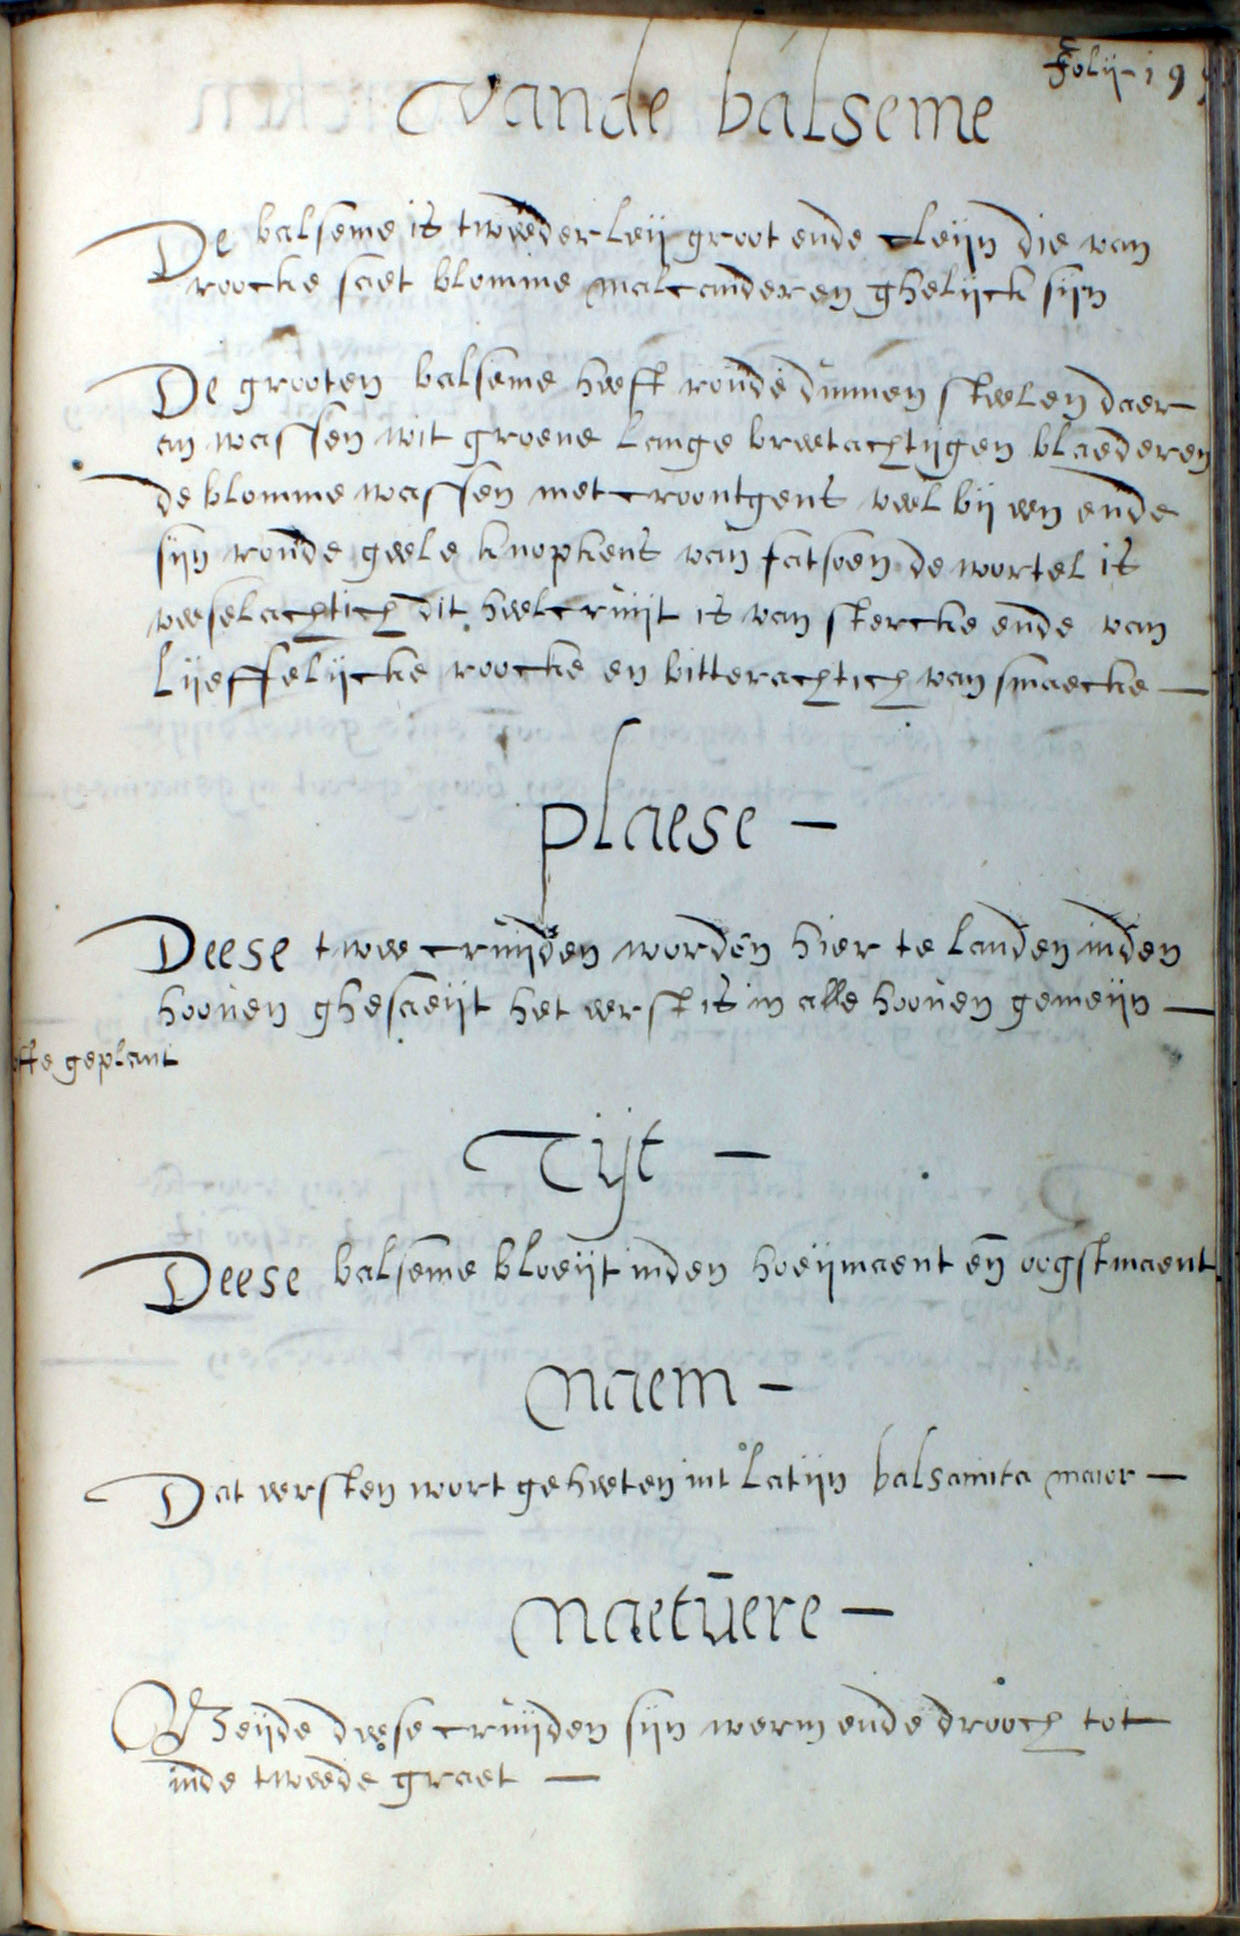 Folij 19
Vande balseme
De balseme is tweederleij groot ende cleijn die van
roocke saet blomme malcanderen ghelijck sijn
De grooten balseme heeft ronde dunnen steelen daer
an wassen wit groene lange breetachtijgen blaederen
de blomme wassen met croontgens veel bij een ende
sijn ronde geele knopkens van fatsoen de wortel is
veeselachtich dit heel cruijt is van stercke ende van
lijeffelijcke roocke en bitterachtich van smaecke
plaese
Deese twee cruijden worden hier te landen inden
hooven ghesaeijt het eerst is in alle hooven gemeijn
offe geplant
Tijt
Deese balseme bloeijt inden hoeijmaent en oogstmaent
naem
Dat eersten wort geheeten int Latijn balsamita maior
naetuere
Beijde deese cruijden sijn werm ende drooch tot
inde tweede graet